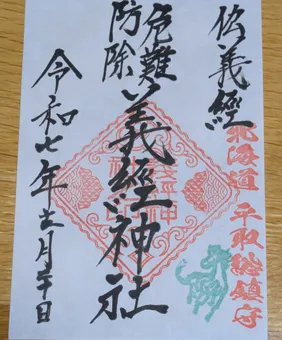 義經
北海道 平取総鎮守
危難
防除
義經神社
令和七年十二月三十日